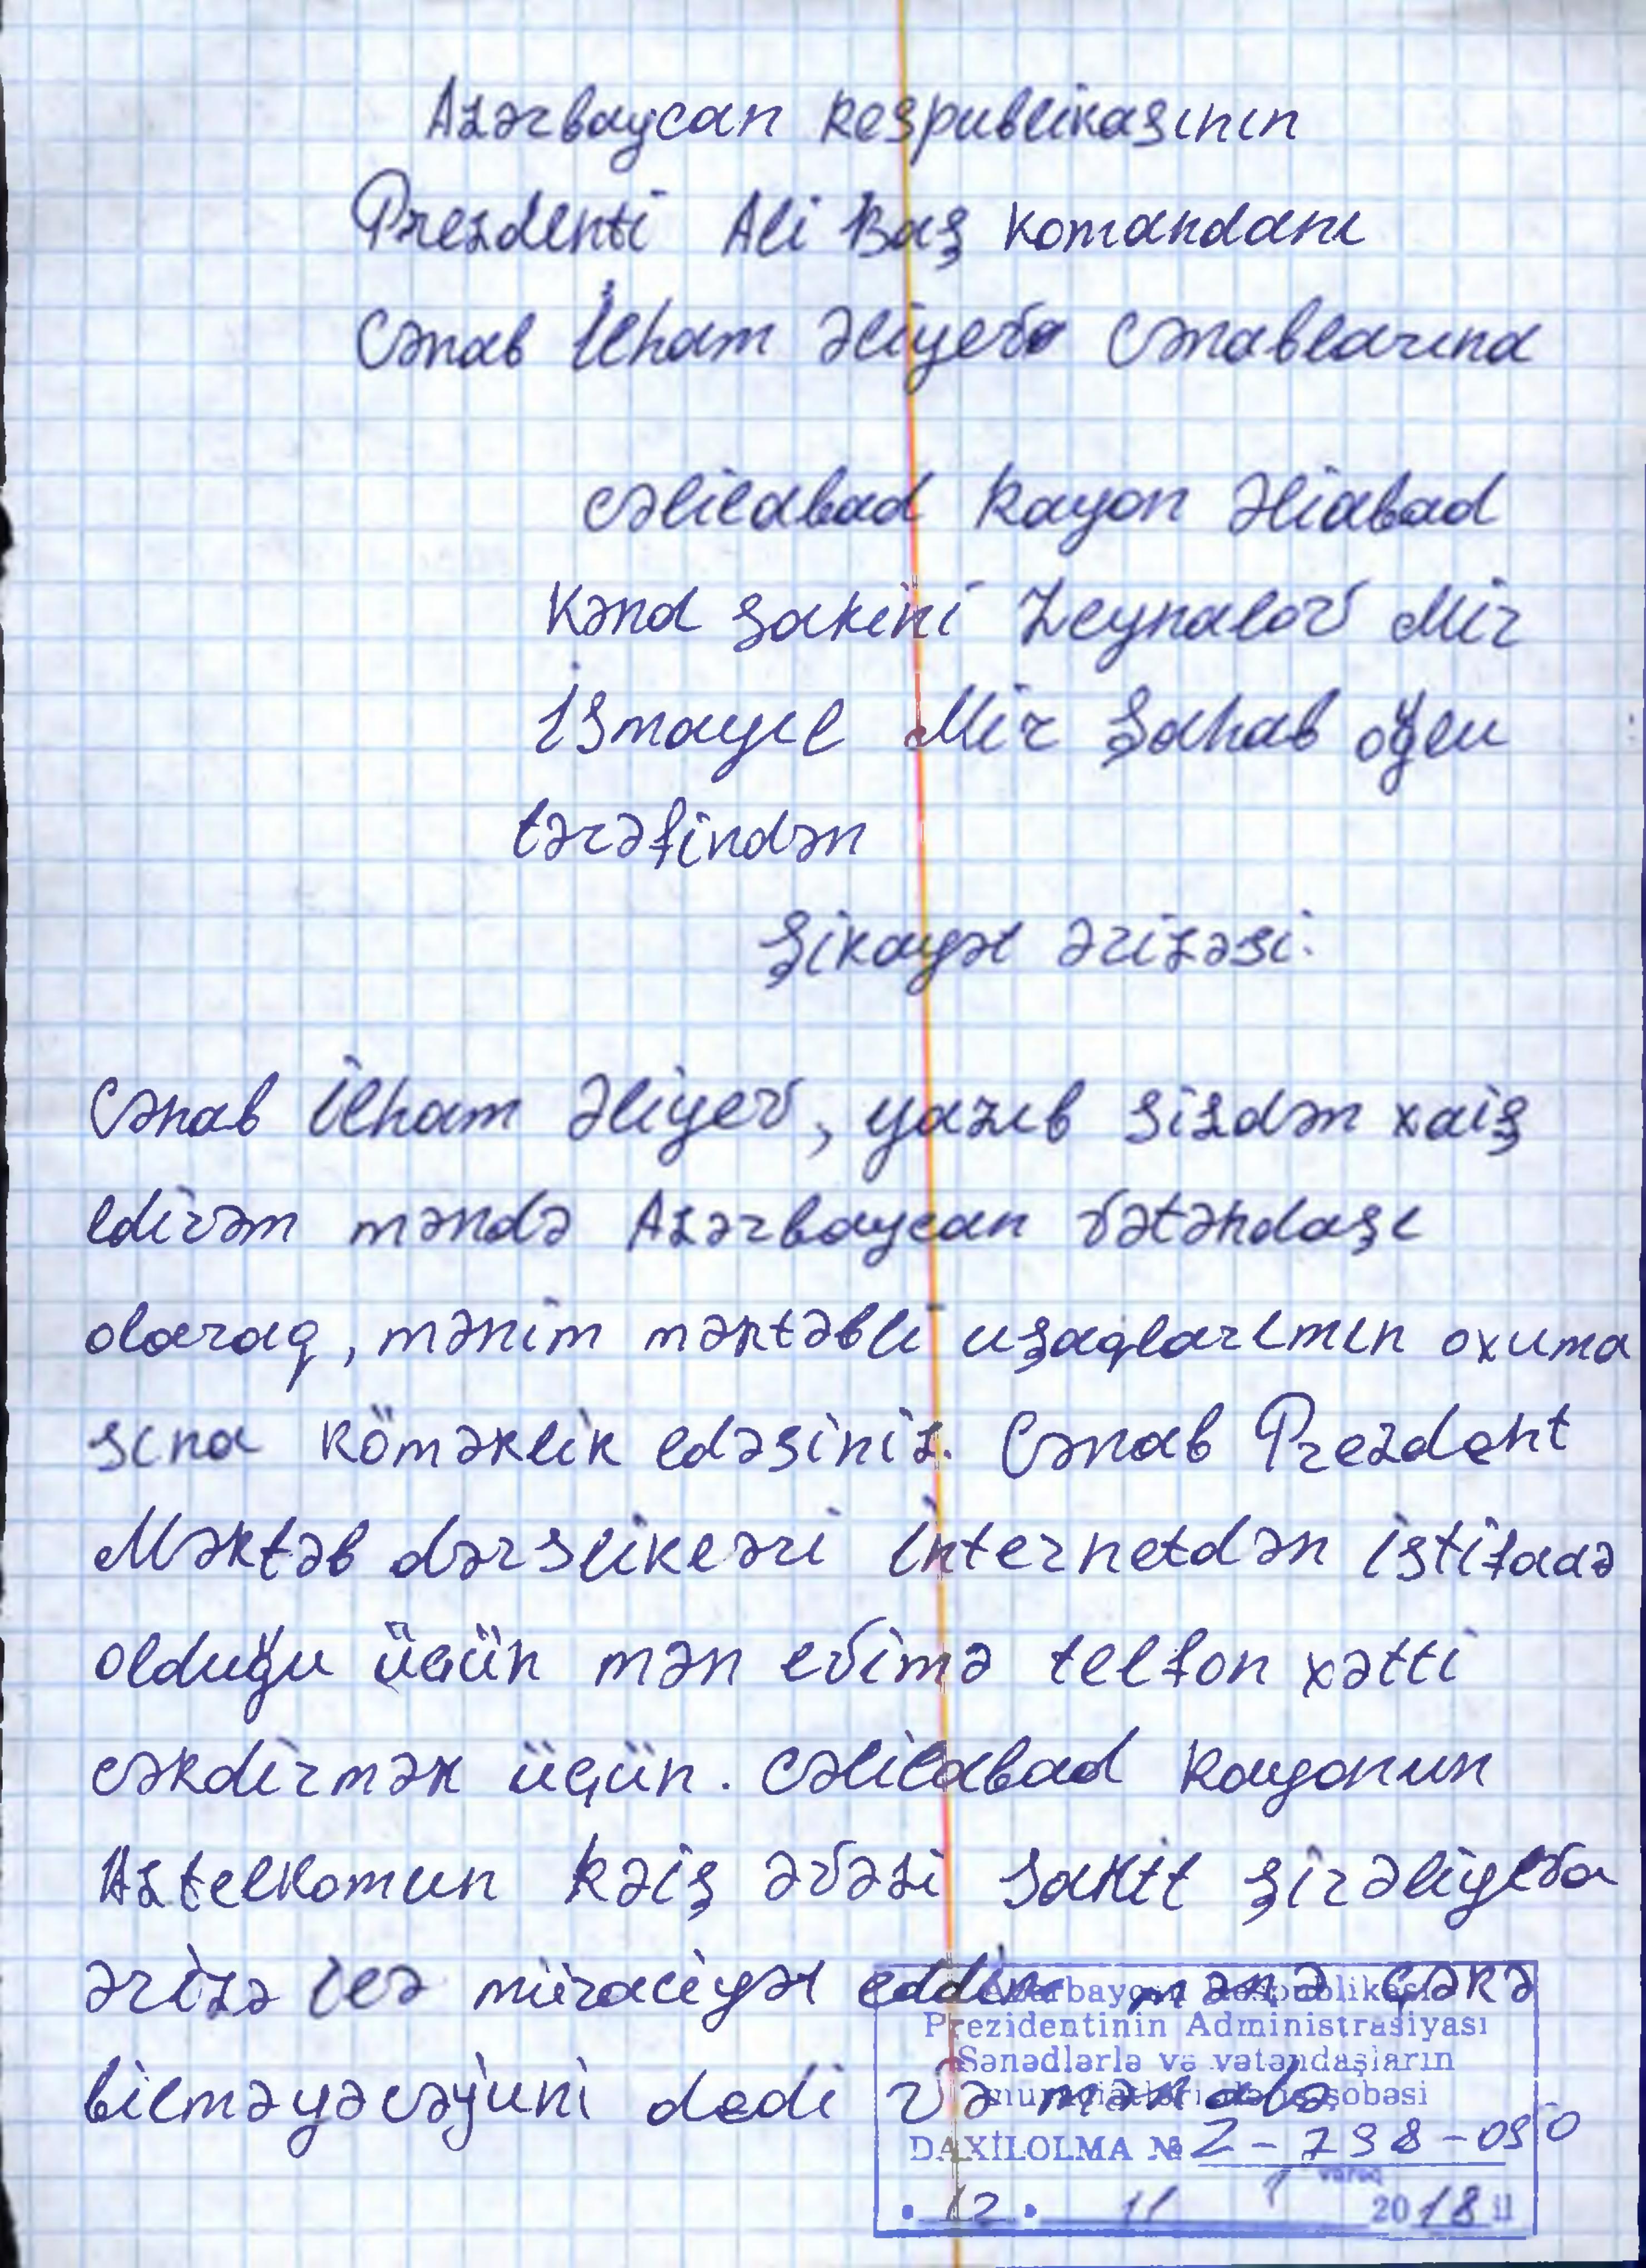 Azərbaycan Respublikaşının
Prezdenti Ali Baş Komandanı
Cənab İlham Əliyevə Cənablarına
Cəlilabad Rayon Əliabad
Kənd şakini Zeynalov Mir
İsmayıl Mir Şahab oğlu
tərəfindən
Şikayət ərizəsi.
Cənab İlham Əliyev, yazıb sizdən xaiş
edirəm məndə Azərbaycan vətəndaşı
olaraq, mənim məktəbli uşaqlarımın oxuma
sına köməklik edəsiniz. Cənab Prezdent
Məktəb dərslikləri İnternetdən istifadə
olduğu üçün mən evimə telfon xətti
cəkdirmək üçün. Cəlilabad Rayonun
Aztelkomun Rəiş əvəzi Sakit Şirəliyevə
ərizə ilə müraciyət eddim mənə çəkə
bilməyəcəyini dedi və
Azərbaycan Respublikası
Prezidentinin Administrasiyası
Sənədlərlə və vətəndaşların
müraciətləri ilə iş şöbəsi
DAXİLOLMA № Z-798-090
1 vərəq
12. 11 2018 il